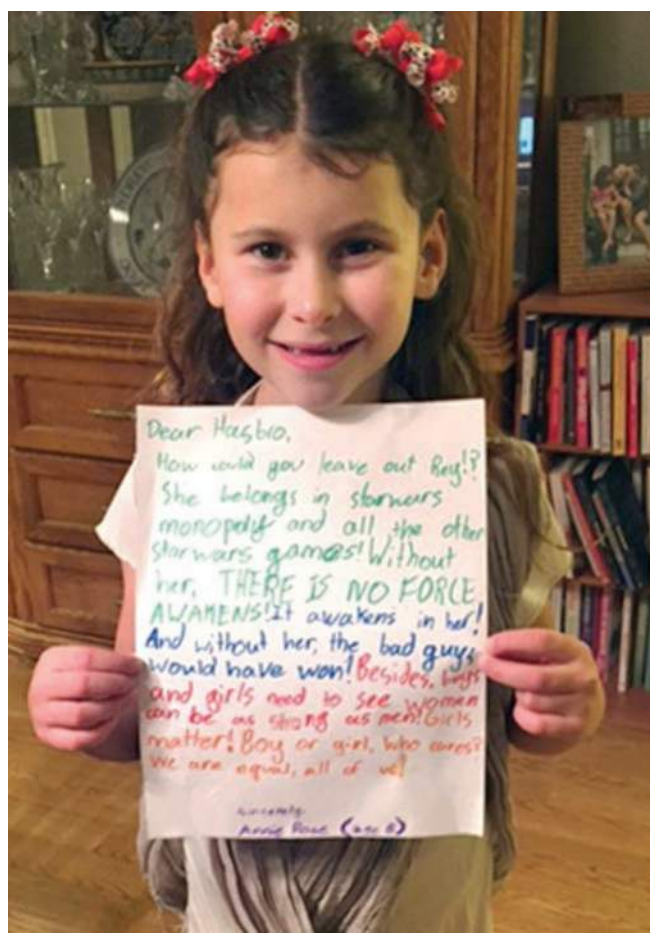 Dear Hasbro,
How could you leave out Rey!?
She belongs in starwars
monopoly and all the other
starwars games! Without
her, THERE IS NO FORCE
AWAKENS! It awakens in her!
And without her, the bad guys
would have won! Besides, boys
and girls need to see women
can be as strong as men! Girls
matter! Boy or girl, who cares?
We are equal, all of us!
Sincerely,
Annie Rose (age 8)